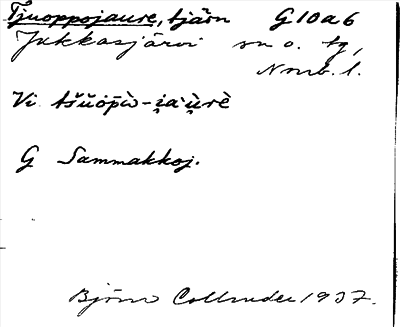 Tjuoppojaure, tjärn G10a6
Jukkasjärvi sn o. tg,
Nmb. l.
Vi tšŭo̭pò-i̯a'ùrè
G Sammakkoj.
Björn Collinder 1937.